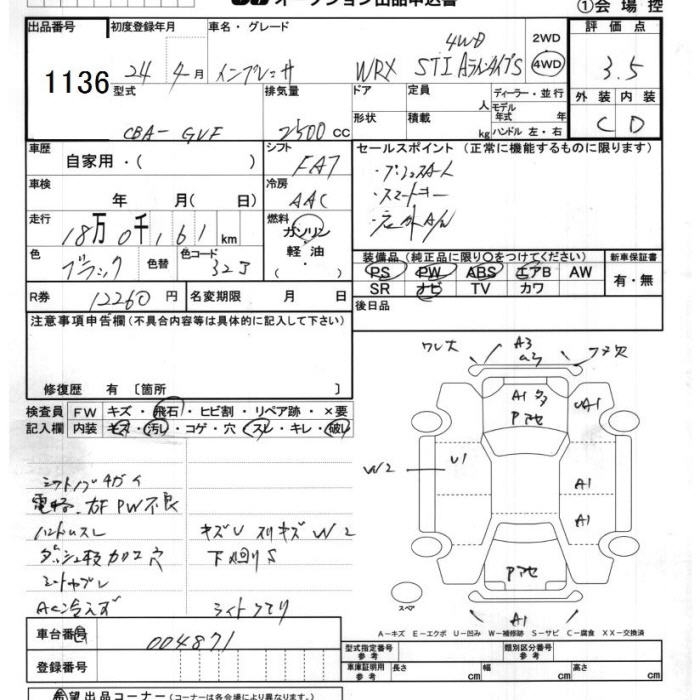 オークション出品申込書
①会場控
出品番号 初度登録年月 車名・グレード 評価点
1136 24年4月 インプレッサ WRX STI AラインタイプS 4WD 2WD 4WD 3.5
型式 排気量 ドア 定員 人 ディーラー・並行 外装 内装
CBA-GVF 2500cc 形状 積載 kg モデル年式 年 ハンドル 左・右 C D
車歴 自家用・( ) シフト FA7 セールスポイント (正常に機能するものに限ります)
・プッシュスタート
車検 年 月( 日) 冷房 AAC ・スマートキー
走行 18万0千161km 燃料 ガソリン 軽油・( ) ・社外A/W
色 ブラック 色替 色コード 32J 装備品(純正品に限り○をつけてください) 新車保証書
PS PW ABS エアB AW 有・無
SR ナビ TV カワ
R券 12260円 名変期限 月 日 後日品
注意事項申告欄(不具合内容等は具体的に記入して下さい)
修復歴 有 [箇所 ]
検査員記入欄 FW キズ・飛石・ヒビ割・リペア跡・×要
内装 キズ・汚レ・コゲ・穴・スレ・キレ・破レ
ワレ大 A3 フタ欠
A1多 Pアセ A1
W2 U1 A1
A1
Pアセ
A1
スペア
シフトノブキズ
電格、右F PW不良
ハンドルスレ キズU スリキズ W2
ダッシュ板加工穴 下廻りS
シートヤブレ
AC冷えず ライトクモリ
A-キズ E-エクボ U-凹み W-補修跡 S-サビ C-腐食 XX-交換済
車台番号 004871 型式指定番号 参考 類別区分番号 参考
登録番号 車庫証明用 参考 長さ cm 幅 cm 高さ cm
希望出品コーナー (コーナーは各会場により異なります。)